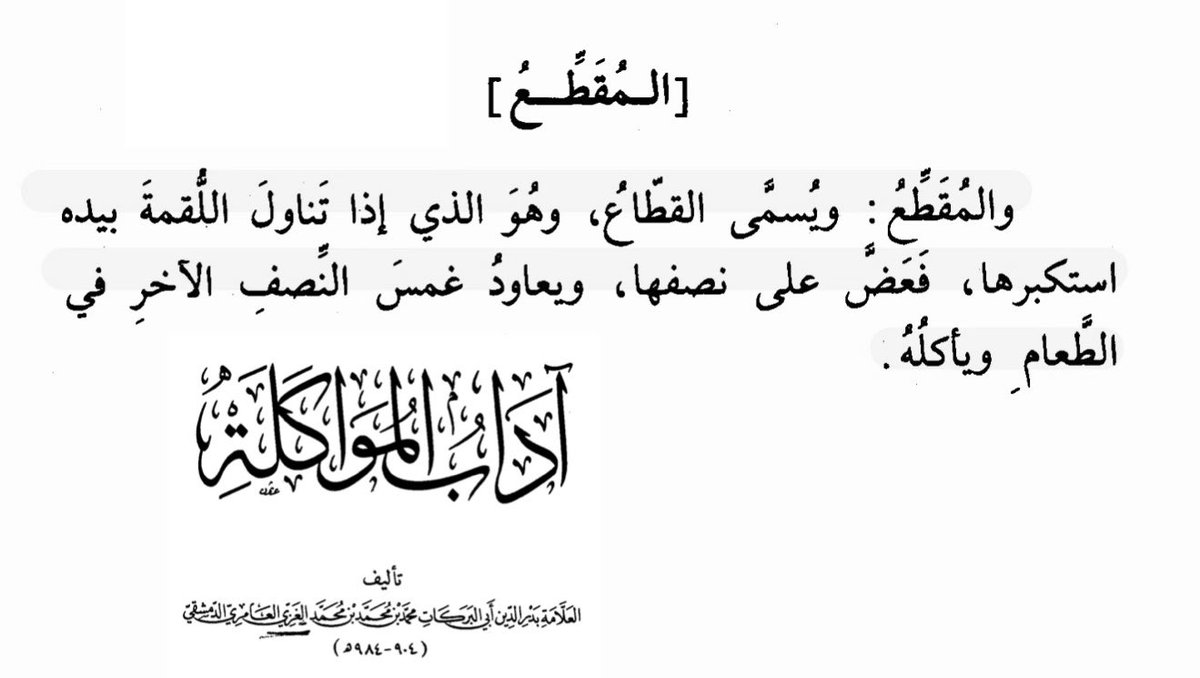 [المُقَطِّعُ]
والمُقَطِّعُ: ويُسمَّى القطّاعُ، وهُوَ الذي إذا تَناولَ اللُّقمةَ بيده
استكبرها، فَعَضَّ على نصفها، ويعاودُ غمسَ النِّصفِ الآخرِ في
الطَّعامِ ويأكلُهُ.
آدَابُ المُوَاكَلَةِ
تأليف
العَلّامَةِ بَدْرِ الدِّين أَبي البَرَكَاتِ مُحَمَّد بْن مُحَمَّد بْن مُحَمَّد الغَزِّي العَامِري الدِّمَشْقِيّ
(٩٠٤-٩٨٤هـ)